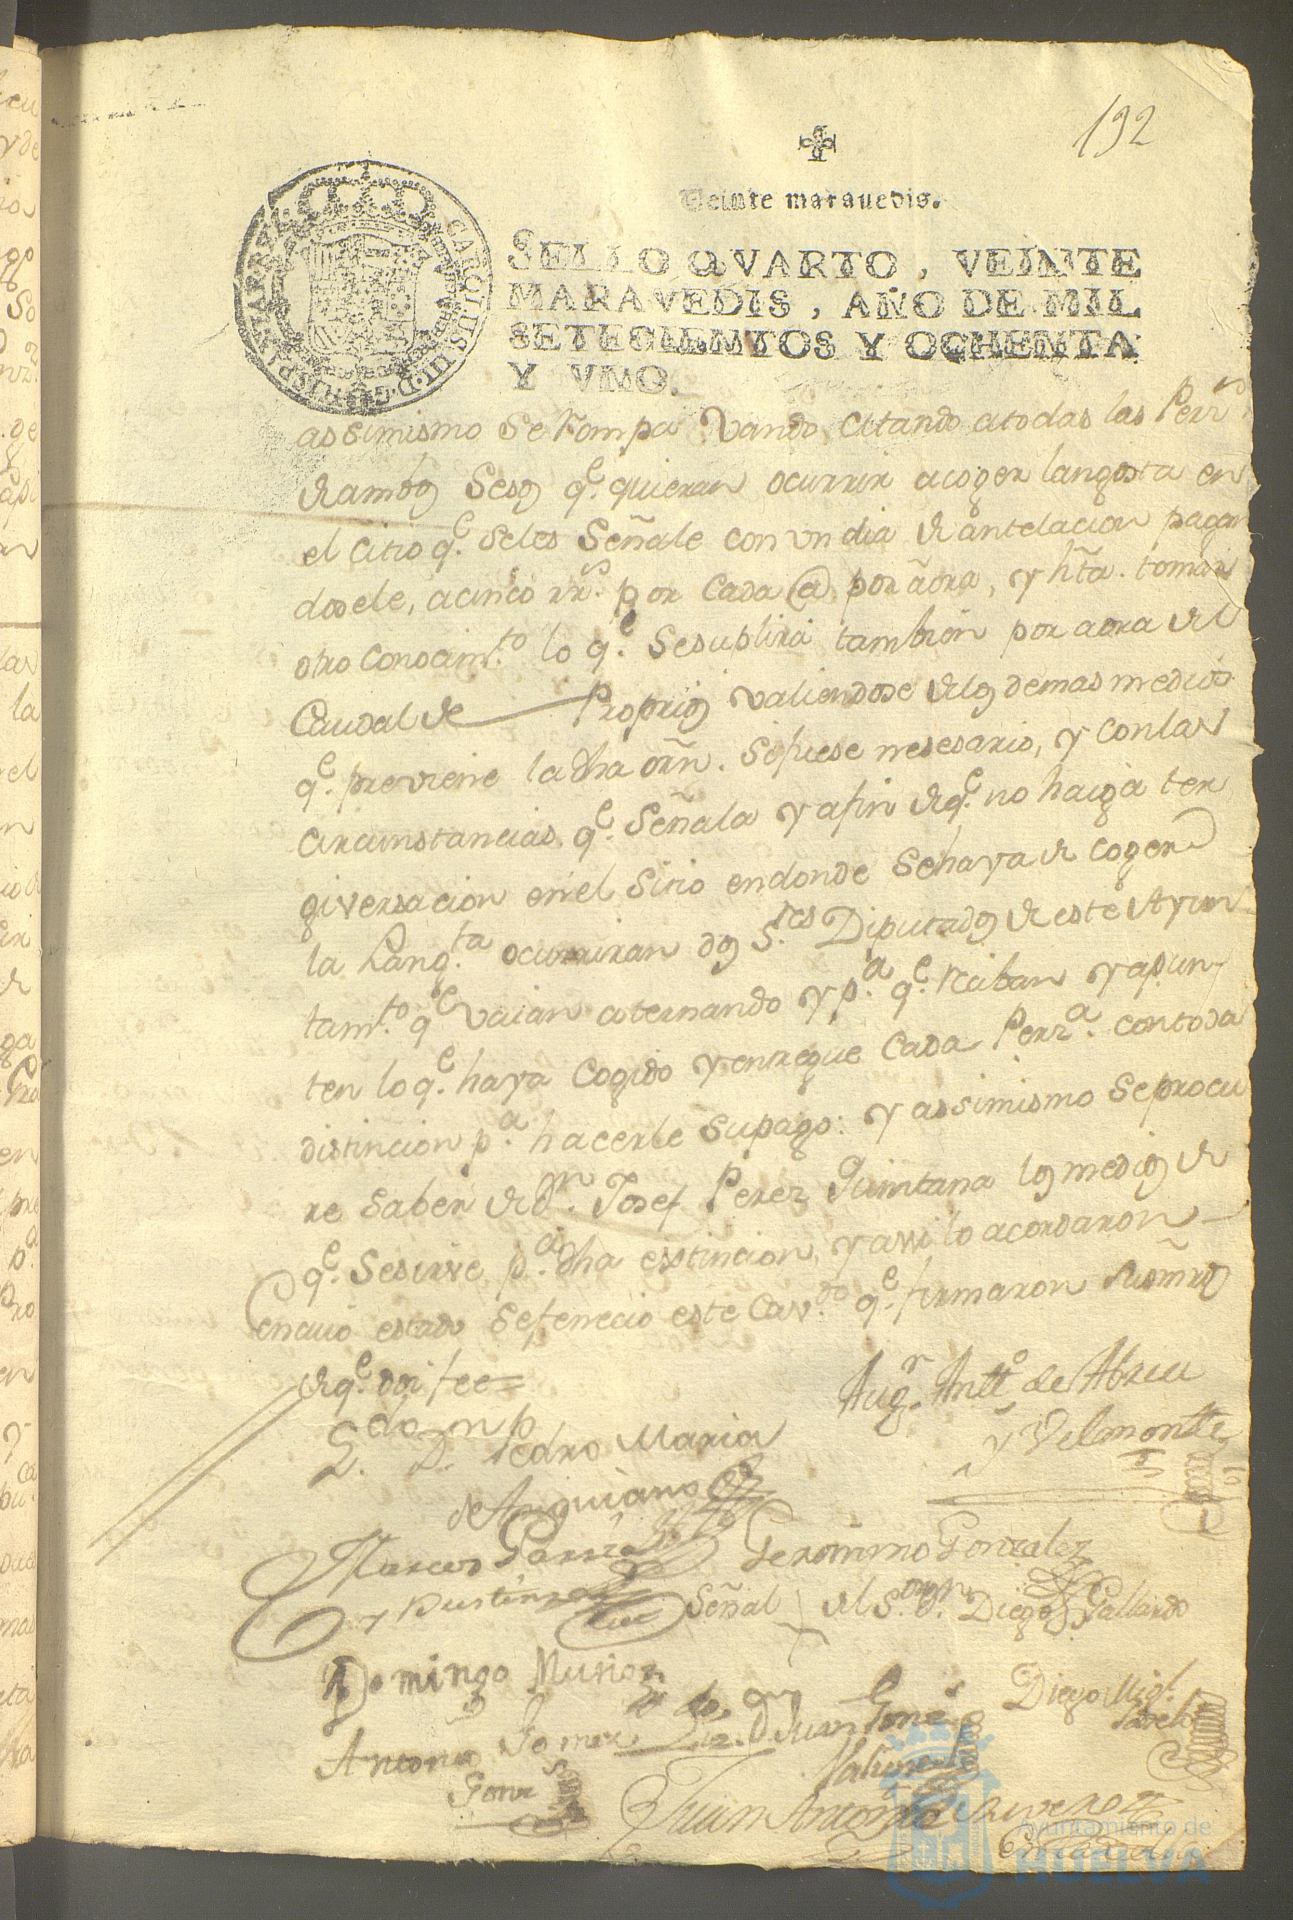 192
Veinte maravedis.
SELLO QVARTO, VEINTE
MARAVEDIS, AÑO DE MIL
SETECIENTOS Y OCHENTA
Y VNO.
CAROLUS III D G HISPANIAR REX
assimismo se rompa vando, citando atodas las Perss
de ambos sesos q.e quieran ocurrir acoger langosta en
el citio q.e seles señale con un dia de antelacion pagan
dosele, acinco rr.s por cada @ por aora, y hta. tomar
otro conocim.to lo q.e sesuplirá tambien por aora del
Caudal de Proprios valiendose delos demas medios
q.e previene la dha orn. sifuese nesesario, y conlas
circunstancias q.e señala y afin deq.e no haiga ter
giversacion en el sitio endonde sehaya de coger
la Lang.ta ocurriran dos S.res Diputados de este Ayun
tam.to q.e vaian alternando y p.a q.e reciban y apun
ten lo q.e haya cogido y entregue cada Perz.a contoda
distincion p.a hacerle supago: y assimismo seprocu
re saber de D.n Josef Perez Quintana los medios de
q.e sesirve p.a dha extincion, y assi lo acordaron
encuio estado sefenecio este Cav.do q.e firmaron sus mrds
deq.e doi fee=
L.do D.n Pedro Maria
de Anguiano
Aug.n Antt.o de Abreu
y Velmonte
Marcos Garrido
y Bustinza
Geronimo Gonzalez
Señal del S.or D.n Diego Gallardo
Domingo Muñoz
Diego Mig.l
Antonio Gomez
Liz.do D.n Juan José
Juan Antonio Rivero
Ayuntamiento de
HUELVA